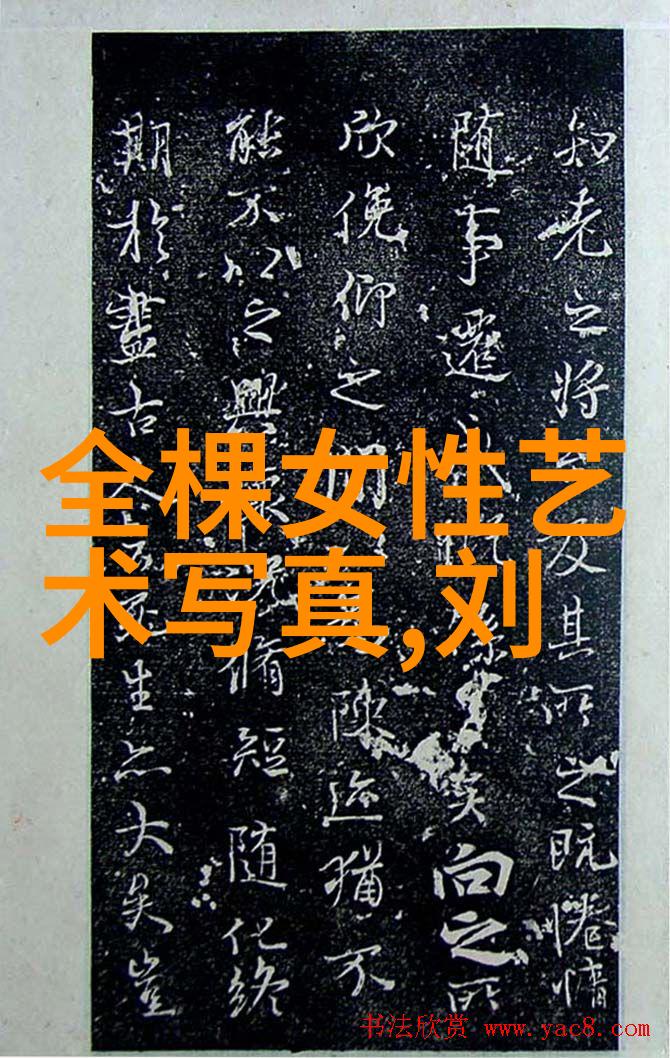 知老之将及其所之既惓情
随事遷感係之矣向之所
欣俛仰之間陳迹猶不
能不以之興懷況脩短随化終
期於盡古人云死生亦大矣豈
全棵女性艺
术写真,刘
书法欣赏 www.yac8.com